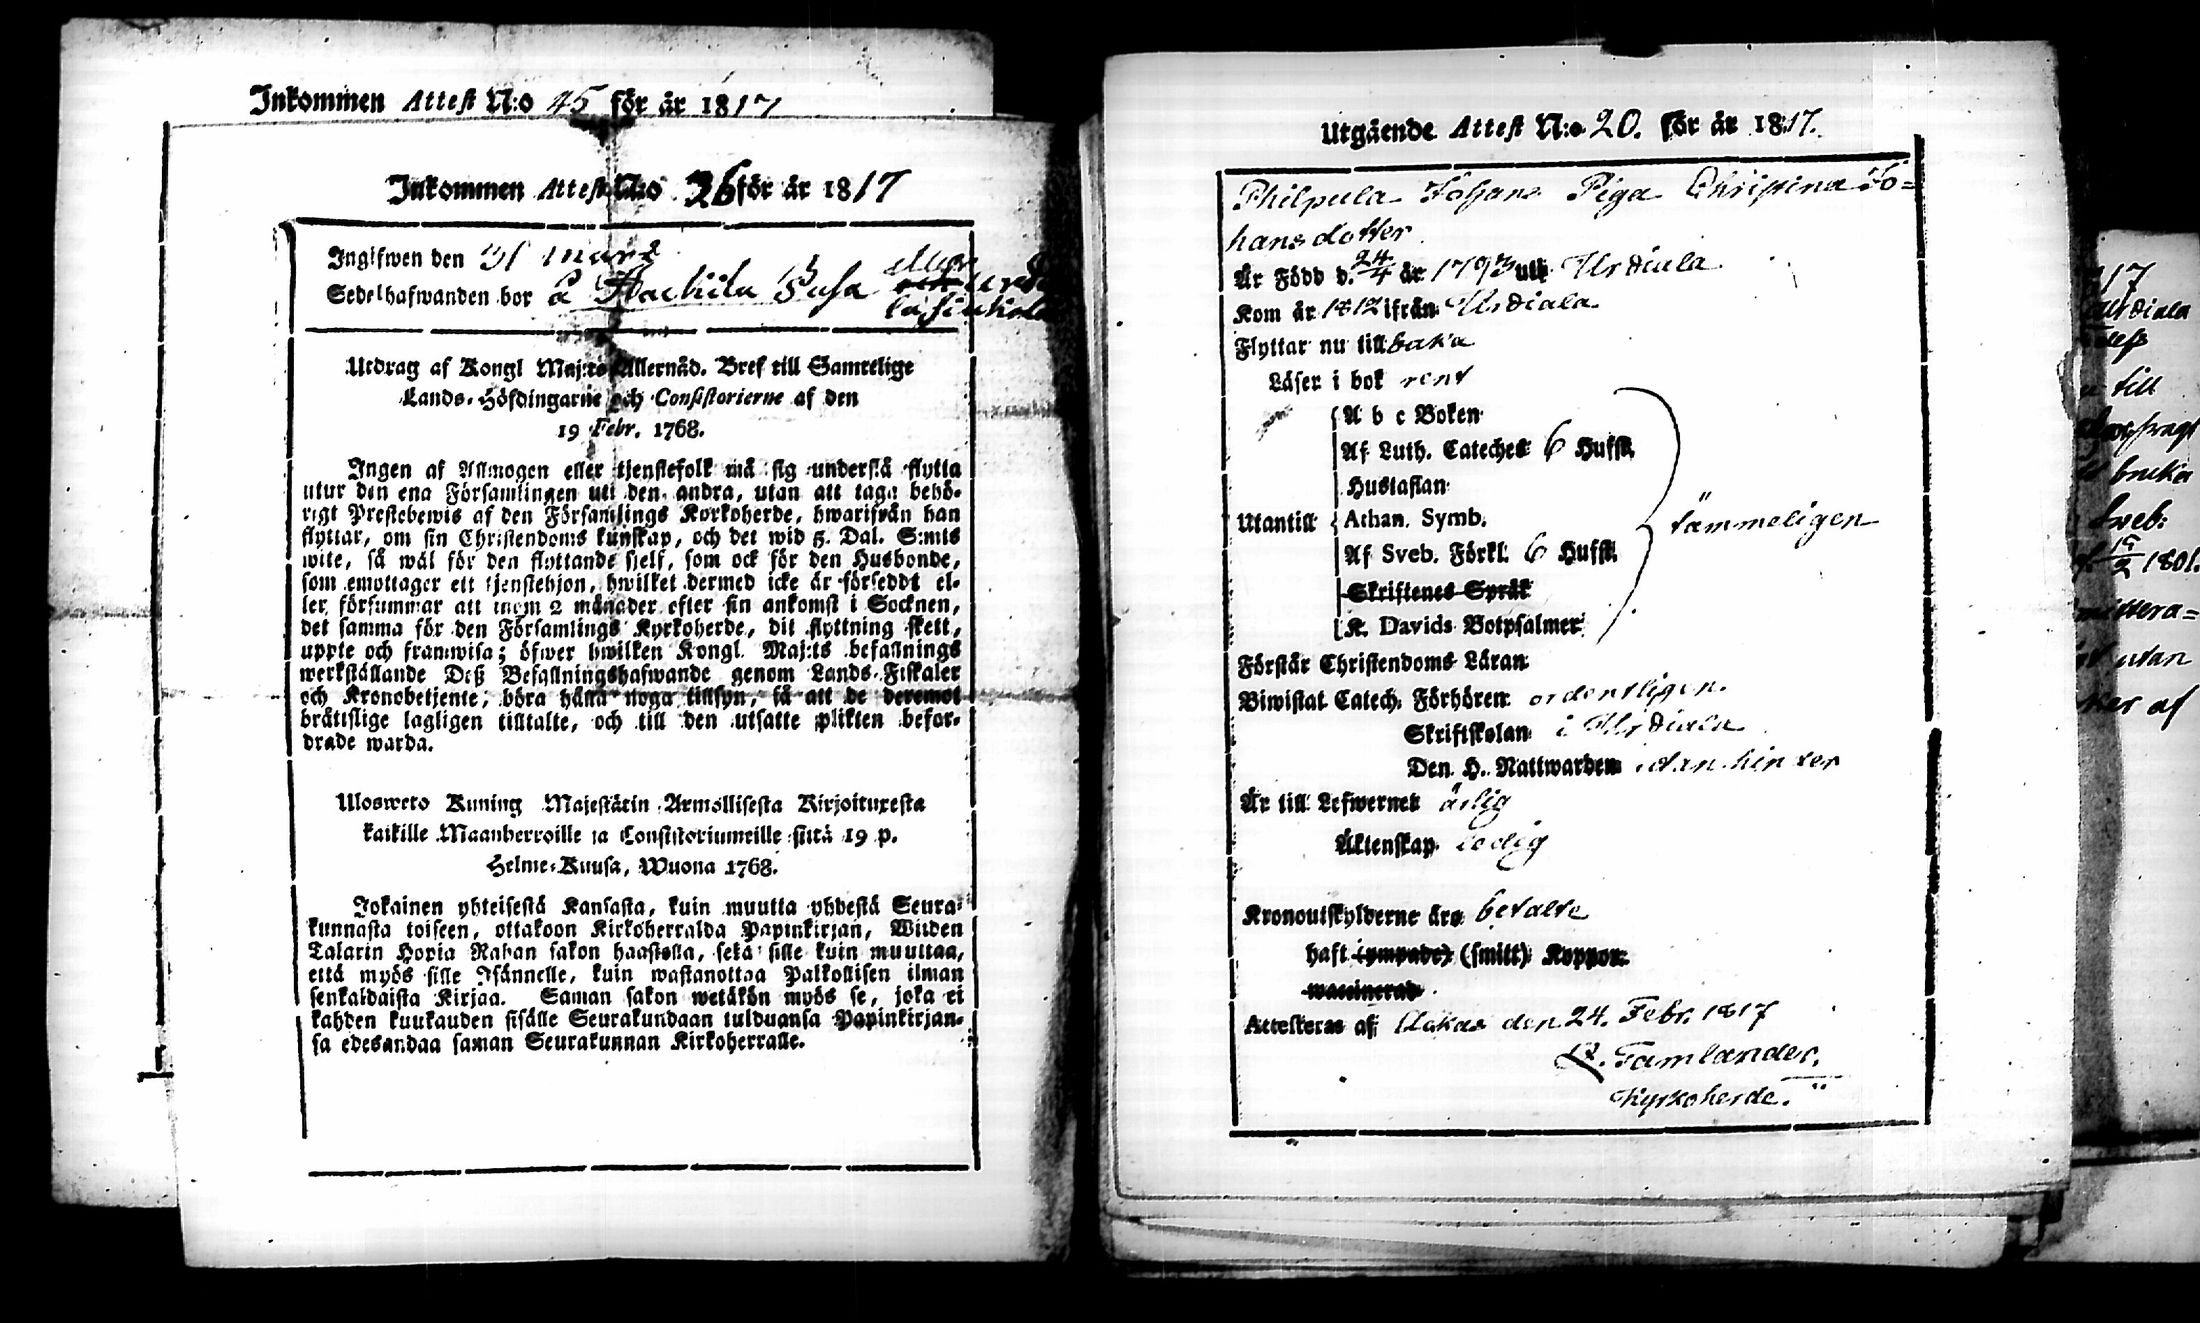 Inkommen Attest N:o 45 för år 1817
Inkommen Attest N:o 26 för år 1817
Ingifwen den 31 mars
Sedelhafwanden bor å Hachila Susa eller
Utdrag af Kongl Maj:ts Allernåd. Bref till Samtelige
Lands-Höfdingarne och Consistorierne af den
19 Febr. 1768.
Ingen af Allmogen eller tjenstefolk må sig understå flytta
utur den ena Församlingen uti den andra, utan att taga behö-
rigt Prestebewis af den Församlings Kyrkoherde, hwarifrån han
flyttar, om sin Christendoms kunskap, och det wid 5. Dal. S:mts
wite, så wäl för den flyttande sjelf, som ock för den Husbonde,
som emottager ett tjenstehjon, hwilket dermed icke är förseddt el-
ler försummar att inom 2 månader efter sin ankomst i Socknen,
det samma för den Församlings Kyrkoherde, dit flyttning skett,
uppte och framwisa; öfwer hwilken Kongl. Maj:ts befallnings
werkställande Deß Befallningshafwande genom Lands-Fiskaler
och Kronobetjente, böra hålla noga tillsyn, så att de deremot
bråttslige lagligen tilltalte, och till den utsatte plikten befor-
drade warda.
Ulosweto Kuning Majestätin Armollisesta Kirjoituxesta
kaikille Maanherroille ja Consistoriumeille siitä 19 p.
Helme-Kuusa, Wuona 1768.
Jokainen yhteisestä Kansasta, kuin muutta yhdestä Seura-
kunnasta toiseen, ottakoon Kirkoherralda Papinkirjan, Wiiden
Talarin Hopia Rahan sakon haastolla, sekä sille kuin muuttaa,
että myös sille Isännelle, kuin wastanottaa Palkollisen ilman
senkaldaista Kirjaa. Saman sakon wetäkön myös se, joka ei
kahden kuukauden sisälle Seurakundaan tulduansa Papinkirjan-
sa edesandaa saman Seurakunnan Kirkoherralle.
Utgående Attest N:o 20. för år 1817.
Philpula Johans Piga Christina Jo=
hansdotter
Är Född d. 24/4 år 1793 uti Urdiala
Kom år 1812 ifrån Urdiala
Flyttar nu tillbaka
Läser i bok rent
A b c Boken
Af Luth. Cateches 6 Hufst.
Hustaflan
Utantill Athan. Symb. tämmeligen
Af Sveb. Förkl. 6 Hufst.
Skriftenes Språk
K. Davids Botpsalmer
Förstår Christendoms Läran
Biwistat Catech. Förhören ordentligen.
Skriftskolan i Urdiala
Den H. Nattwarden utan hinder
Är till Lefwernet ärlig
Äktenskap ledig
Kronoutskylderne äro betalte
haft (ympade) (smitt) Koppor
waccinerad
Attesteras af Ackas den 24. Febr. 1817
Tamlander,
Kyrkoherde.
17
Urdiala
till
bruka
Sveb:
19/2 1801.
utan
af